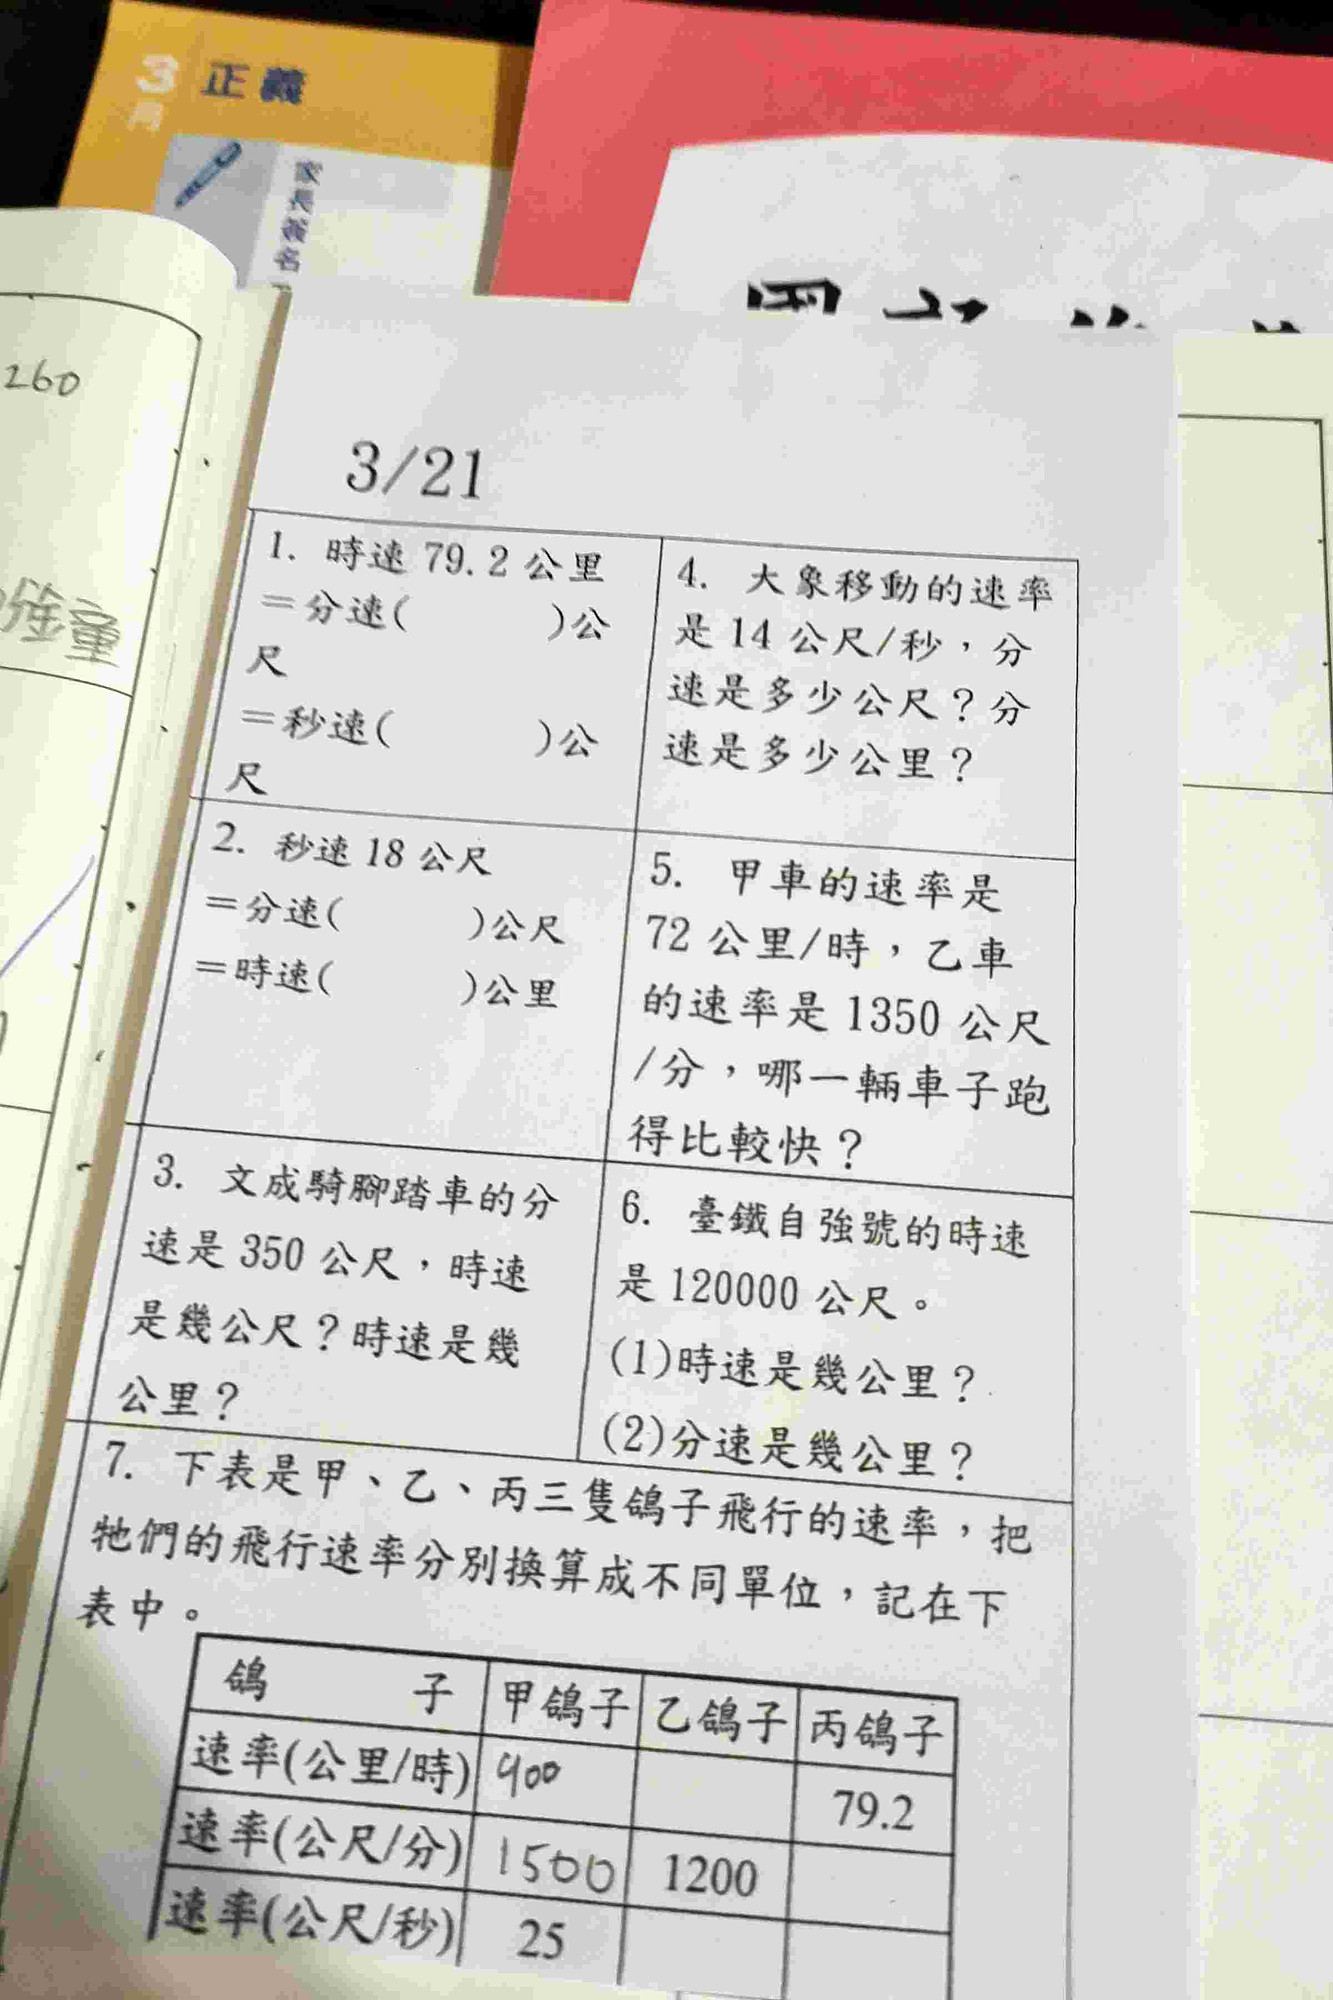 3
月
正義
家長簽名
260
童
3/21
1. 時速 79.2 公里
＝分速(          )公
尺
＝秒速(          )公
尺
2. 秒速 18 公尺
＝分速(          )公尺
＝時速(          )公里
3. 文成騎腳踏車的分
速是 350 公尺，時速
是幾公尺？時速是幾
公里？
4. 大象移動的速率
是 14 公尺/秒，分
速是多少公尺？分
速是多少公里？
5. 甲車的速率是
72 公里/時，乙車
的速率是 1350 公尺
/分，哪一輛車子跑
得比較快？
6. 臺鐵自強號的時速
是 120000 公尺。
(1)時速是幾公里？
(2)分速是幾公里？
7. 下表是甲、乙、丙三隻鴿子飛行的速率，把
牠們的飛行速率分別換算成不同單位，記在下
表中。
鴿 子 甲鴿子 乙鴿子 丙鴿子
速率(公里/時) 900 79.2
速率(公尺/分) 1500 1200
速率(公尺/秒) 25